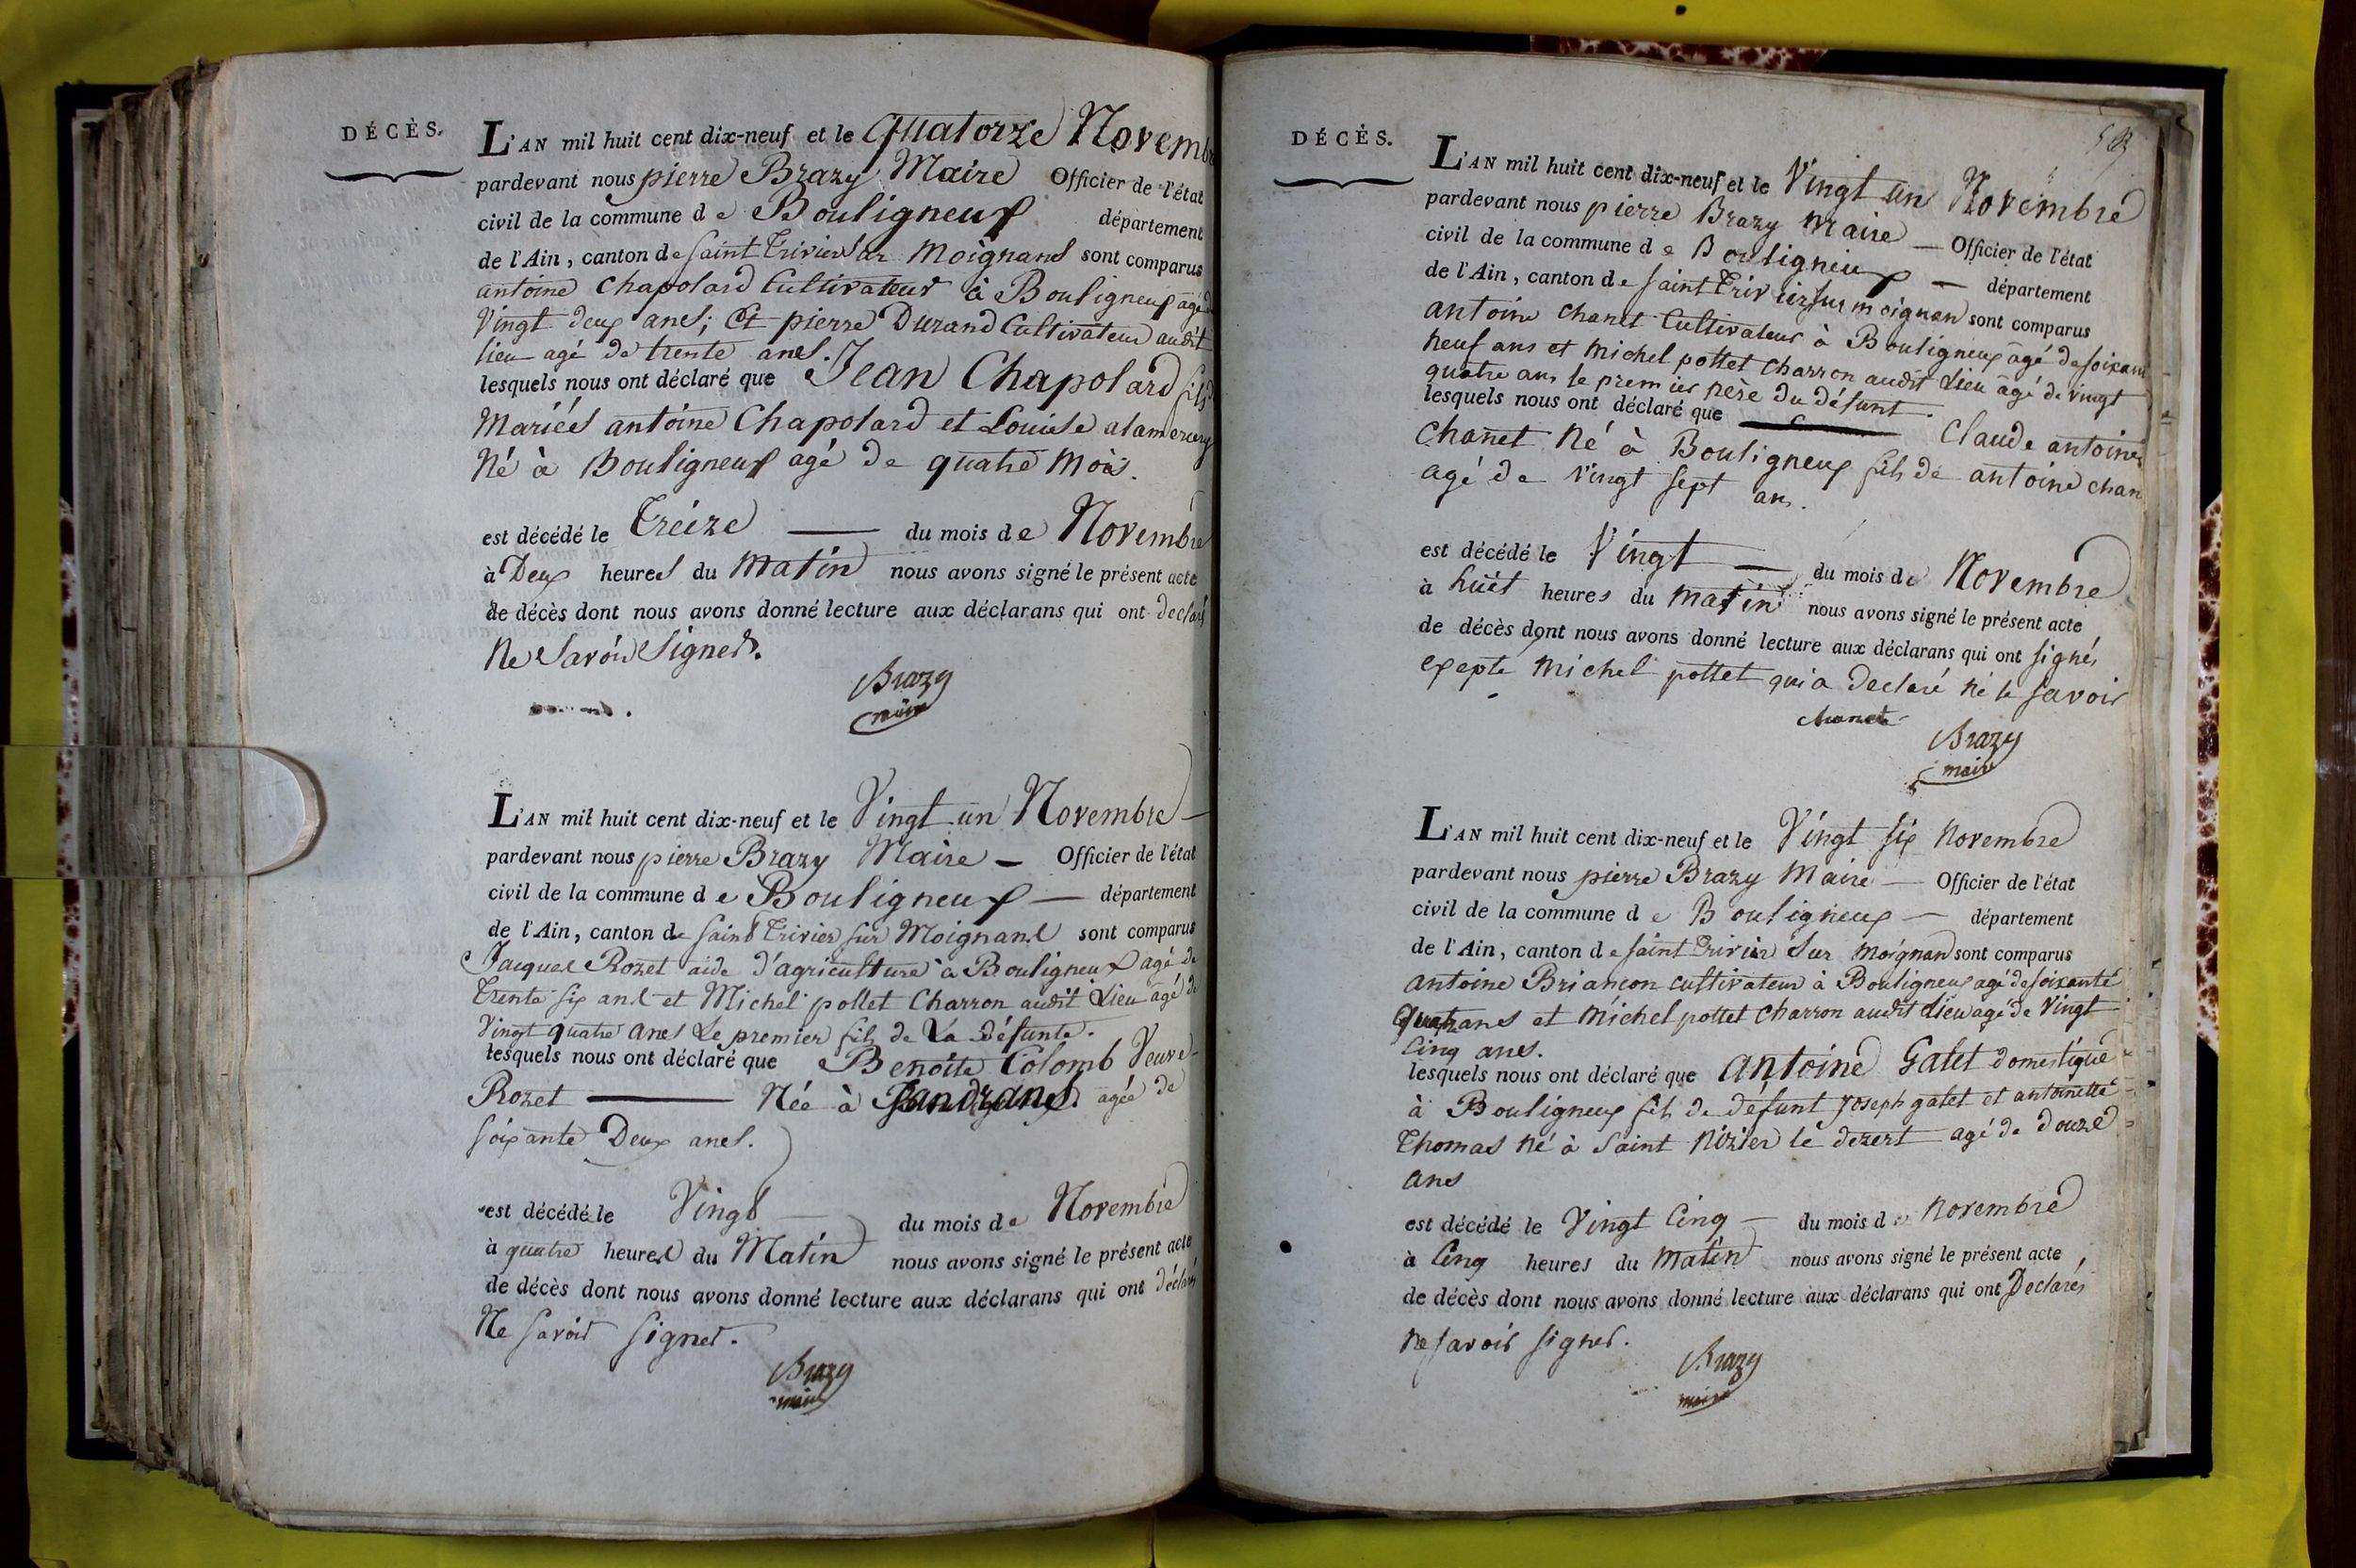 DÉCÈS.
L'AN mil huit cent dix-neuf et le quatorze Novembre
pardevant nous pierre Brazy Maire Officier de l'état
civil de la commune de Bouligneux département
de l'Ain, canton de Saint Trivier sur Moignans sont comparus
antoine Chapolard Cultivateur à Bouligneux agé de
Vingt deux anes; Et pierre Durand Cultivateur audit
lieu agé de trente anes.
lesquels nous ont déclaré que Jean Chapolard fils
Mariéés antoine Chapolard et Louise alamercery
Né à Bouligneux agé de quatre Mois.
est décédé le Treize du mois de Novembre
à Deux heures du Matin nous avons signé le présent acte
de décès dont nous avons donné lecture aux déclarans qui ont declarés
Ne Savoir Signer.
Brazy
maire
L'AN mil huit cent dix-neuf et le Vingt un Novembre
pardevant nous pierre Brazy Maire Officier de l'état
civil de la commune de Bouligneux département
de l'Ain, canton de Saint Trivier sur Moignans sont comparus
Jacques Rozet aide d'agriculture à Bouligneux agé de
Trente six ans et Michel pollet Charron audit Lieu agé de
Vingt quatre anes Le premier fils de La défunte.
lesquels nous ont déclaré que Benoite Colomb Veuve
Rozet Née à Sandrans agée de
soixante Deux anes.
est décédé le Vingt du mois de Novembre
à quatre heures du Matin nous avons signé le présent acte
de décès dont nous avons donné lecture aux déclarans qui ont déclarés
Ne savoir signer.
Brazy
maire
DÉCÈS.
L'AN mil huit cent dix-neuf et le Vingt un Novembre
pardevant nous pierre Brazy Maire Officier de l'état
civil de la commune de Bouligneux département
de l'Ain, canton de Saint Trivier sur moignan sont comparus
antoine chanet Cultivateur à Bouligneux agé de soixante
neuf ans et Michel pollet charron audit Lieu agé de vingt
quatre ans le premier père du défunt.
lesquels nous ont déclaré que Claude antoine
Chanet Né à Bouligneux fils de antoine chan
agé de Vingt sept ans.
est décédé le Vingt du mois de Novembre
à huit heures du matin nous avons signé le présent acte
de décès dont nous avons donné lecture aux déclarans qui ont signés
expepte Michel pollet qui a declaré ne le savoir
chanet
Brazy
maire
L'AN mil huit cent dix-neuf et le Vingt six Novembre
pardevant nous pierre Brazy Maire Officier de l'état
civil de la commune de Bouligneux département
de l'Ain, canton de Saint Trivier Sur moignan sont comparus
antoine Briancon cultivateur à Bouligneux agé de soixante
ans et Michel pollet Charron audit Lieu agé de Vingt
Cinq anes.
lesquels nous ont déclaré que Antoine Galet domestique
à Bouligneux fils de défunt joseph galet et antoinette
Thomas né à Saint Nizier le dezert agé de douze
ans
est décédé le Vingt Cinq du mois de Novembre
à Cinq heures du Matin nous avons signé le présent acte
de décès dont nous avons donné lecture aux déclarans qui ont Declarés
ne savoir signer.
Brazy
maire